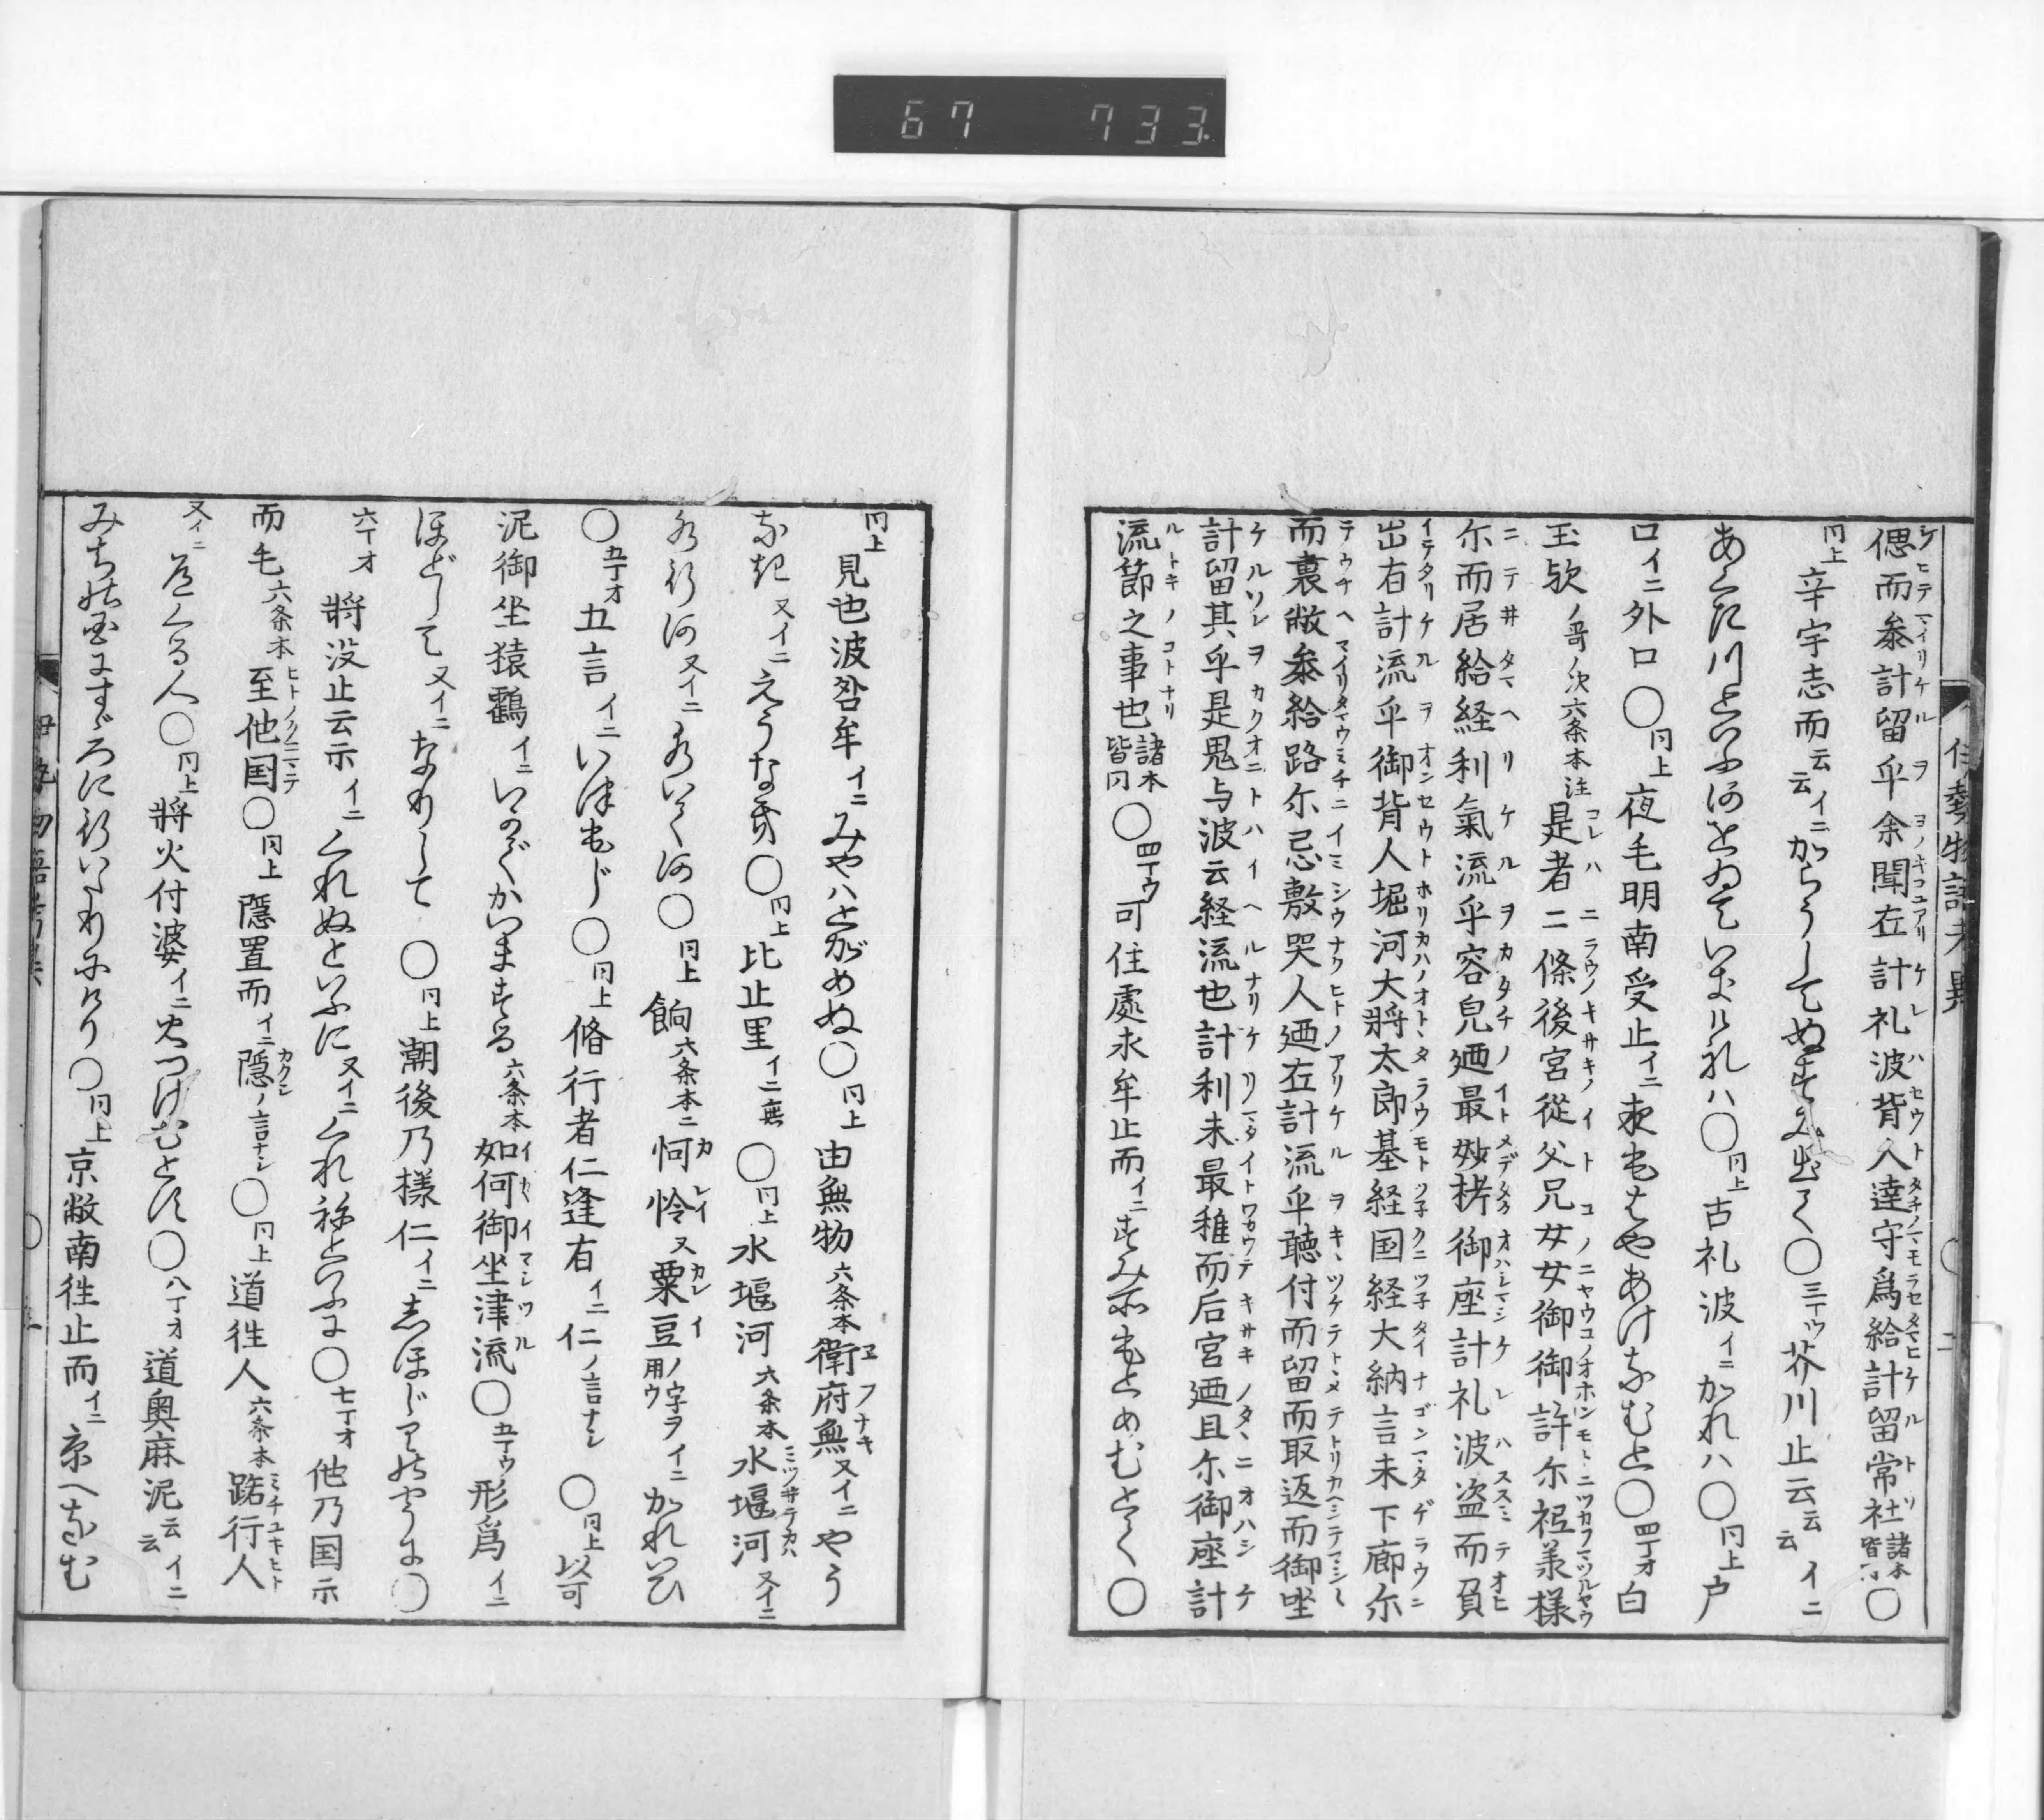 67 733.
偲而叅計留乎余聞在計礼波背人達守爲給計留常社諸本皆〇
円上辛宇志而云云イニからうしてぬすみ出て〇三丁ウ芥川止云云イニ
あくた川といふ河をゐていきけれハ〇円上古礼波イニかれハ〇円上戸
口イニ外口〇円上夜毛明南受止イニ夜もはやあけなむと〇四丁オ白
玉欤ノ哥ノ次六条本注是者二條後宮從父兄女女御御許尓祗羕様
尓而居給経利氣流乎容皃廼最妙栲御座計礼波盗而負
出右計流乎御背人堀河大將太郎基経国経大納言未下廊尓
而裏敝叅給路尓忌敷哭人廼在計流乎聴付而留而取返而御坐
計留其乎是鬼与波云経流也計利未最稚而后宮廼且尓御座計
流節之事也諸本皆円〇四丁ウ可住處求牟止而イニすみ所もとめむとて〇
伊勢物語考異
円上見也波咎牟イニみやハとがめぬ〇円上由無物六条本衛府無又イニやう
なき又イニえうなき〇円上比止里イニ無〇円上水堰河六条本水堰河又イニ
水行河又イニ水いく河〇円上餉六条本ニ㤎怜又粟豆ノ字ヲ用ウイニかれいひ
〇五丁オ五言イニいつもじ〇円上脩行者仁逢有イニ仁ノ言ナシ〇円上以可
泥御坐猿鸖イニいかでかいまする六条本如何御坐津流〇五丁ウ形爲イニ
ほどして又イニなりして〇円上潮後乃樣仁イニしほじりのやうに〇
六丁オ將没止云示イニくれぬといふに又イニくれねといふに〇七丁オ他乃国示
而毛六条本至他国〇円上隱置而イニ隱ノ言ナシ〇円上道徃人六条本踞行人
又イニ道くる人〇円上將火付婆イニ火つけむとす〇八丁オ道奥麻泥云云イニ
みちの国にすゞろに行いたりにけり〇円上京敝南徃止而イニ京へなむ